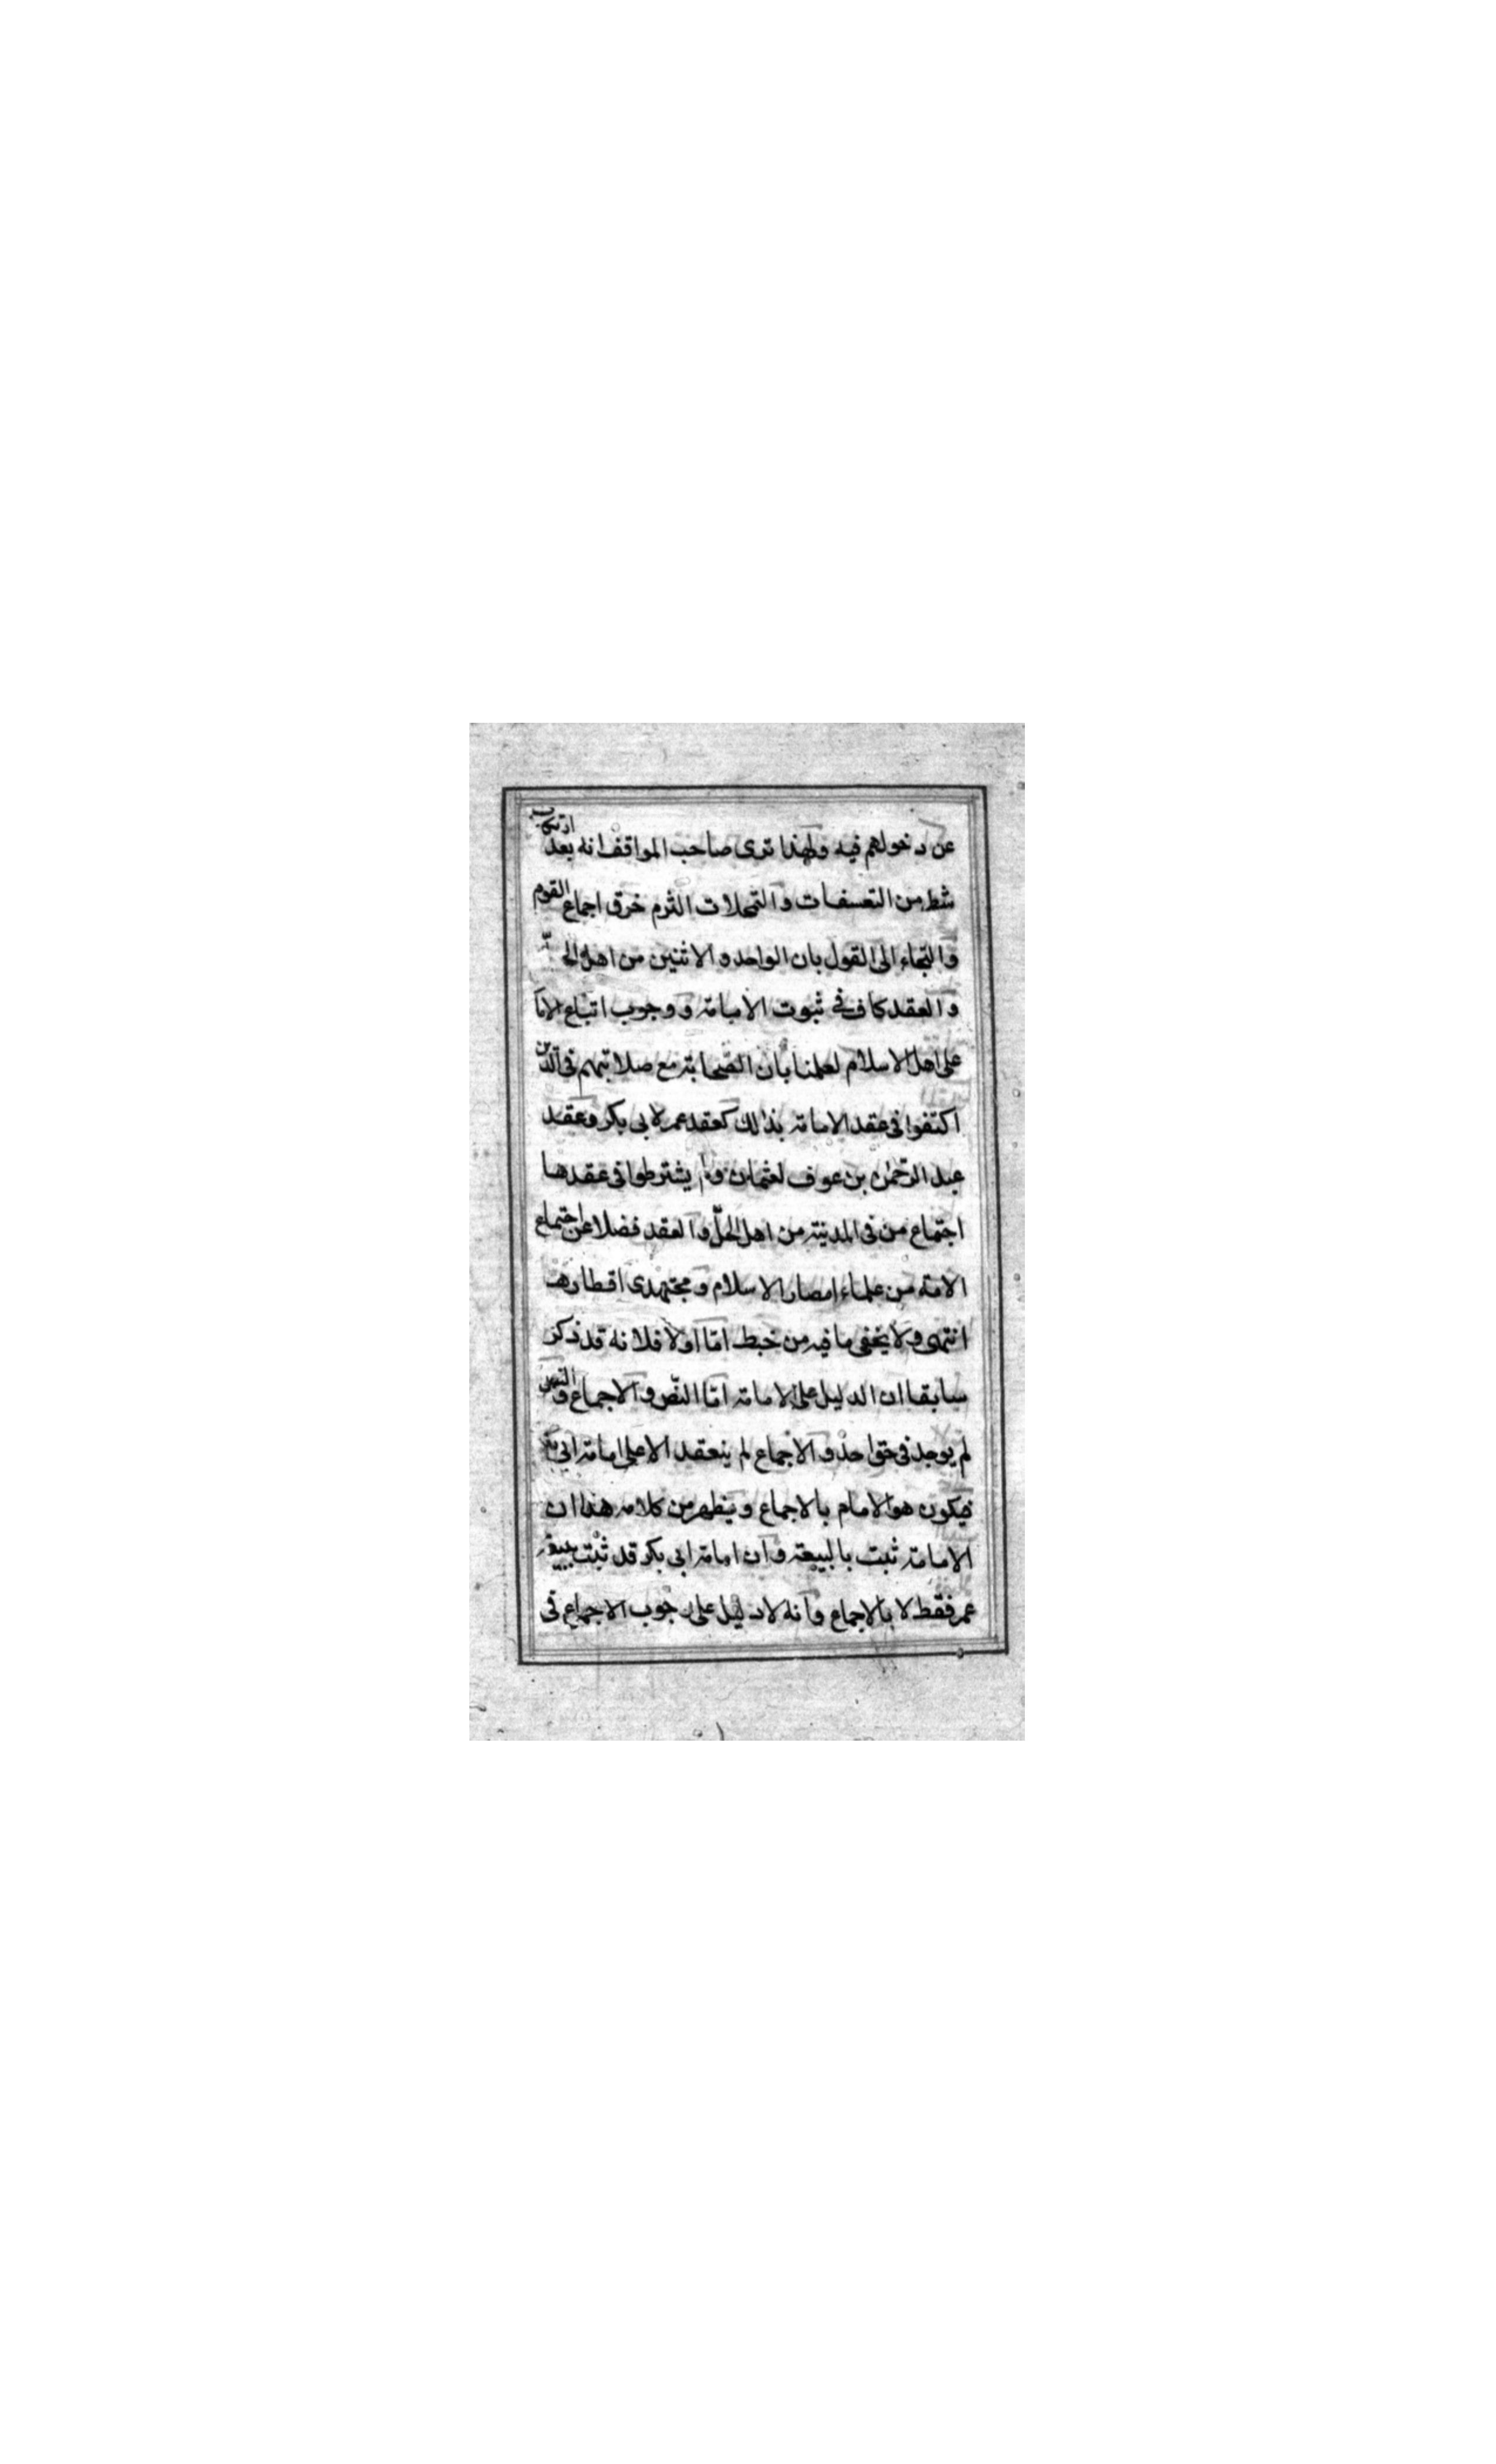 عن دخولهم فيه ولهذا ترى صاحب المواقف انه بعد ارتكاب
شطر من التعسفات والتمحلات التزم خرق اجماع القوم
والتجاء الى القول بان الواحد والاثنين من اهل الحلّ
والعقد كاف فى ثبوت الامامة ووجوب اتباع الاما
على اهل الاسلام لعلمنا بان الصّحابة مع صلابتهم فى الدّين
اكتفوا فى عقد الامامة بذلك كعقد عمر لابى بكر وعقد
عبد الرّحمن بن عوف لعثمان ولم يشترطوا فى عقدها
اجتماع من فى المدينة من اهل الحلّ والعقد فضلا عن اجتماع
الامة من علماء امصار الاسلام ومجتهدى اقطارها
انتهى ولا يخفى ما فيه من خبط امّا اولا فلانه قد ذكر
سابقا ان الدليل على الامامة امّا النّص والاجماع والنص
لم يوجد فى حق احد والاجماع لم ينعقد الا على امامة ابى بكر
فيكون هو الامام بالاجماع ويظهر من كلامه هذا ان
الامامة ثبت بالبيعة وان امامة ابى بكر قد ثبتت ببيعة
عمر فقط لا بالاجماع وانه لا دليل على وجوب الاجماع فى